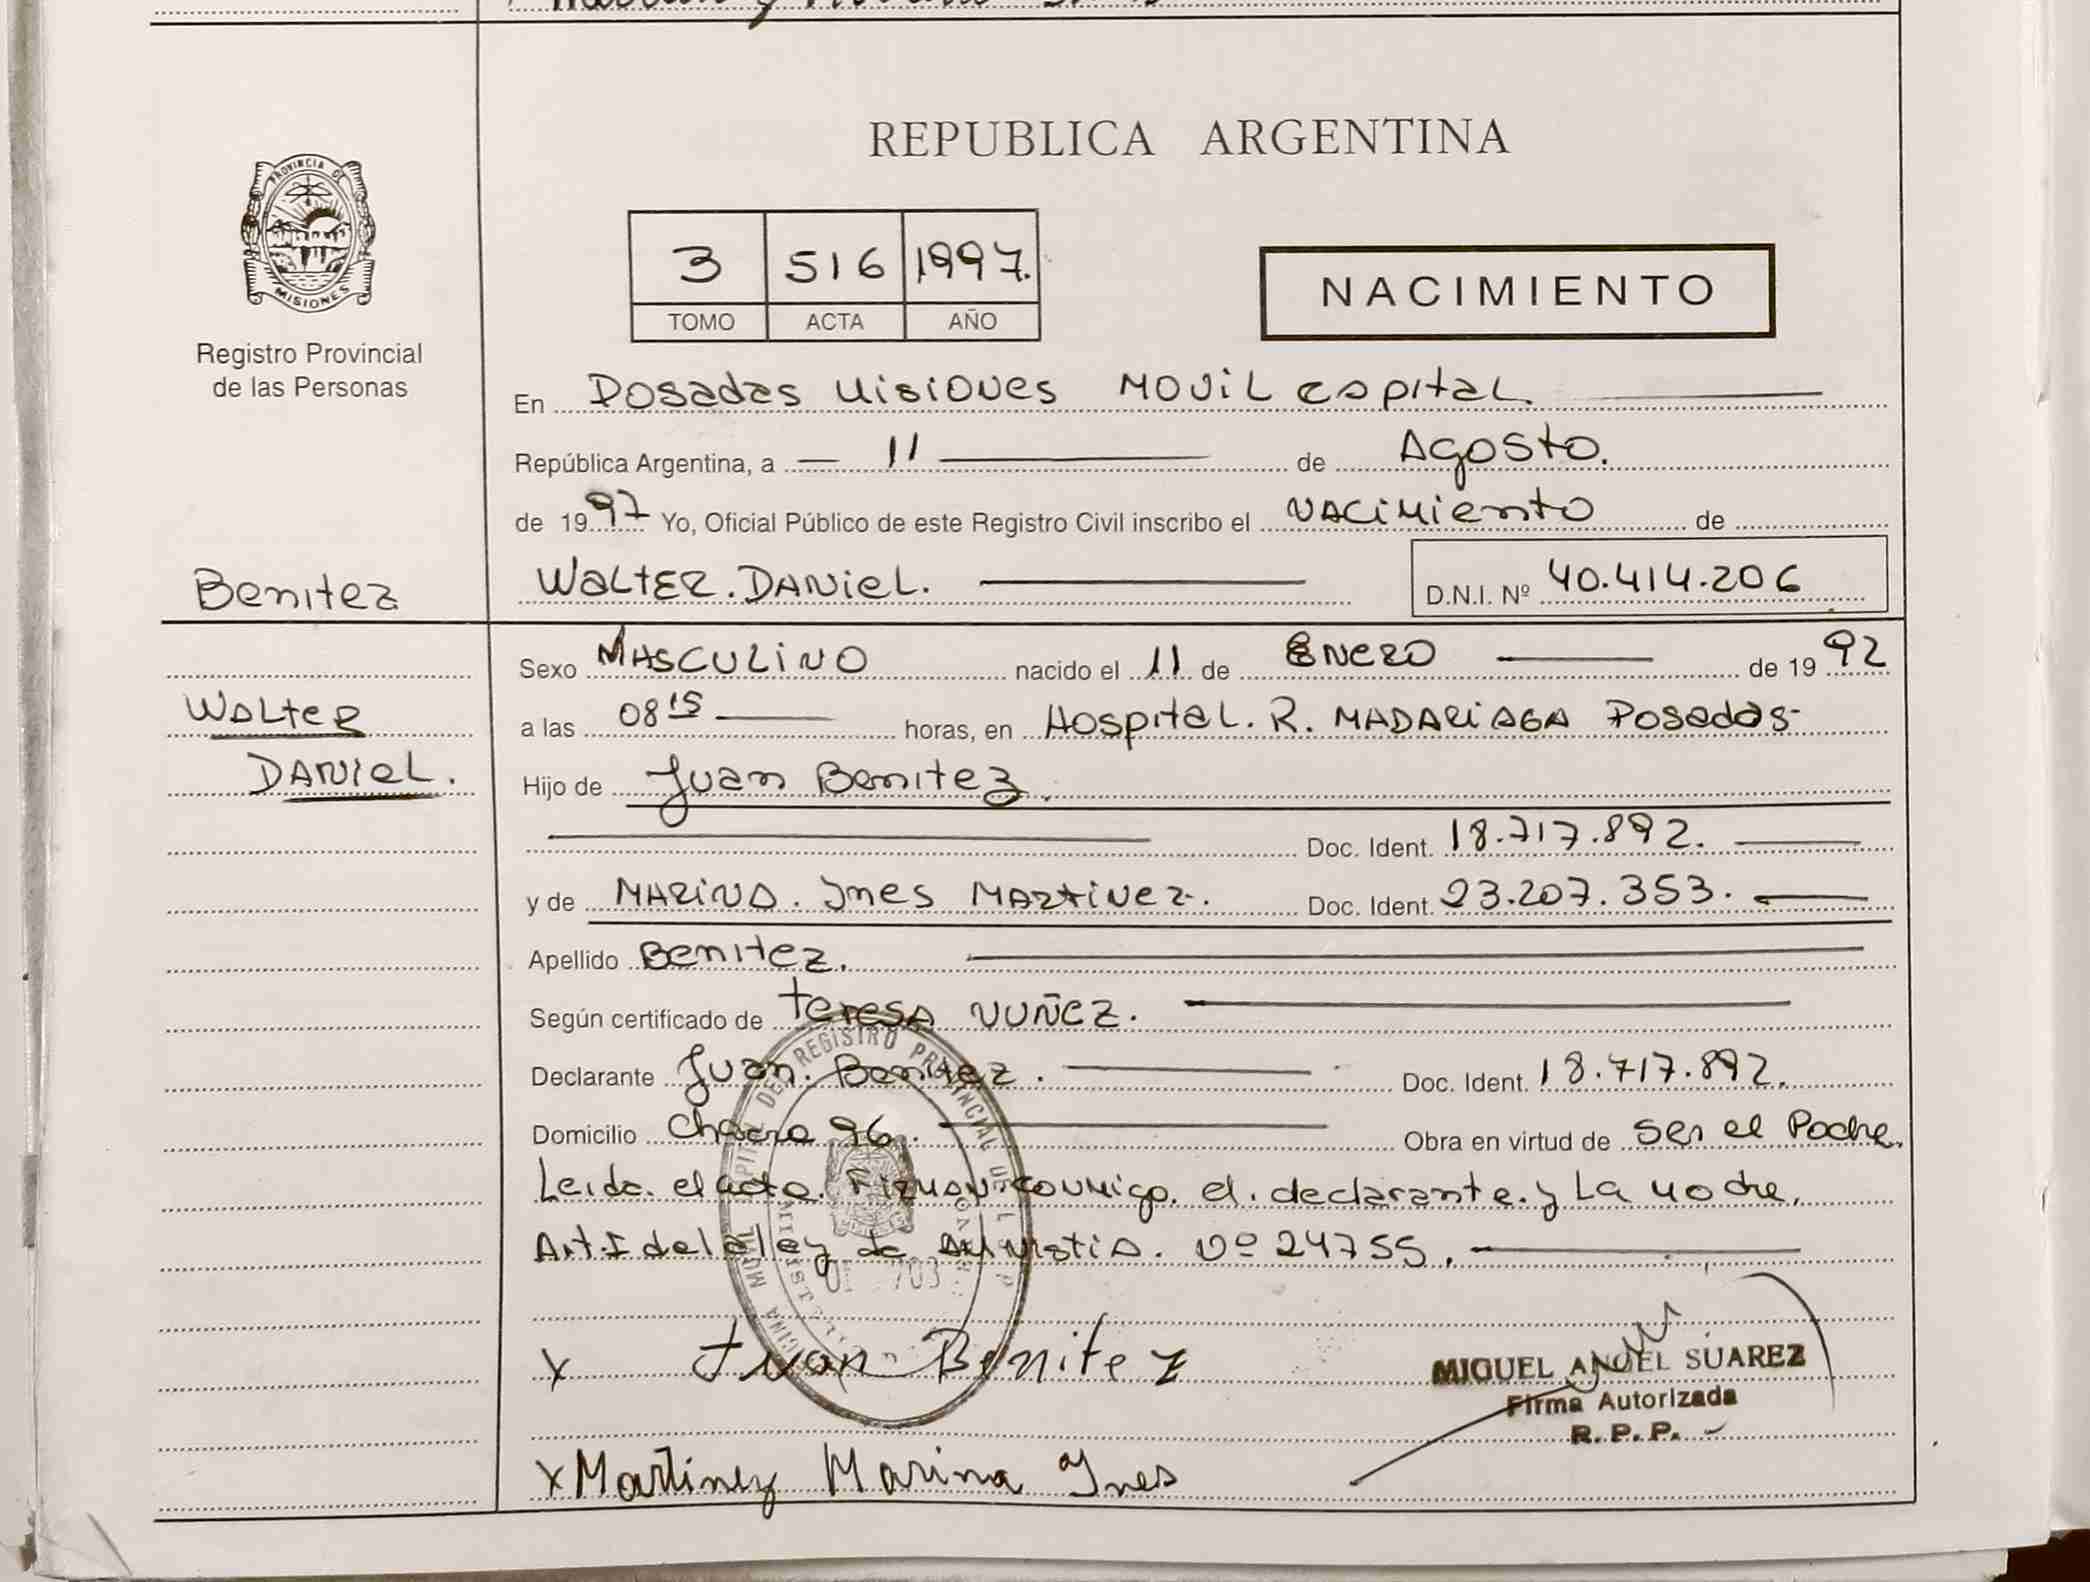 REPUBLICA ARGENTINA
PROVINCIA DE
MISIONES
Registro Provincial
de las Personas
3 516 1997.
TOMO ACTA AÑO
NACIMIENTO
En Posadas Misiones Movil Capital.
República Argentina, a 11 de Agosto.
de 1997 Yo, Oficial Público de este Registro Civil inscribo el Nacimiento de
Benitez
Walter. Daniel.
D.N.I. Nº 40.414.206
Sexo Masculino nacido el 11 de Enero de 1992
Walter
a las 08 15 horas, en Hospital. R. Madariaga Posadas
Daniel.
Hijo de Juan Benitez.
Doc. Ident. 18.717.892.
y de Marina. Ines Martinez. Doc. Ident. 23.207.353.
Apellido Benitez.
Según certificado de Teresa Nuñez.
Declarante Juan. Benitez. Doc. Ident. 18.717.892.
Domicilio Chacra 96. Obra en virtud de ser el Padre.
Leida. el acta. Firman conmigo. el. declarante. y La madre.
Art. I de la ley de Amnistia. Nº 24755.
x Juan Benitez
MIGUEL ANGEL SUAREZ
Firma Autorizada
R. P. P.
x Martinez Marina Ines